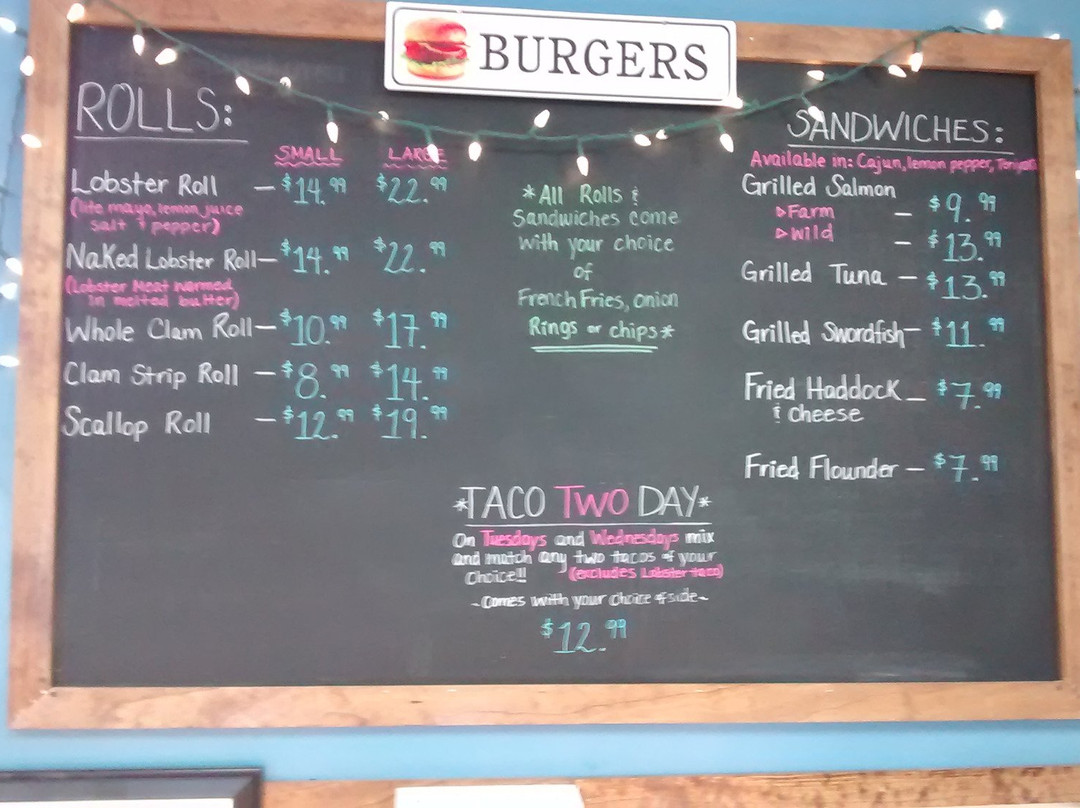 BURGERS
ROLLS:
SMALL LARGE
Lobster Roll – $14.99 $22.99
(lite mayo, lemon juice
salt & pepper)
Naked Lobster Roll – $14.99 $22.99
(Lobster Meat warmed
in melted butter)
Whole Clam Roll – $10.99 $17.99
Clam Strip Roll – $8.99 $14.99
Scallop Roll – $12.99 $19.99
*All Rolls &
Sandwiches come
with your choice
of
French Fries, onion
Rings or chips*
SANDWICHES:
Available in: Cajun, lemon pepper, Teriyaki
Grilled Salmon
▹Farm – $9.99
▹Wild – $13.99
Grilled Tuna – $13.99
Grilled Swordfish – $11.99
Fried Haddock – $7.99
& cheese
Fried Flounder – $7.99
*TACO TWO DAY*
On Tuesdays and Wednesdays mix
and match any two tacos of your
Choice!! (excludes Lobster taco)
~Comes with your choice of side~
$12.99